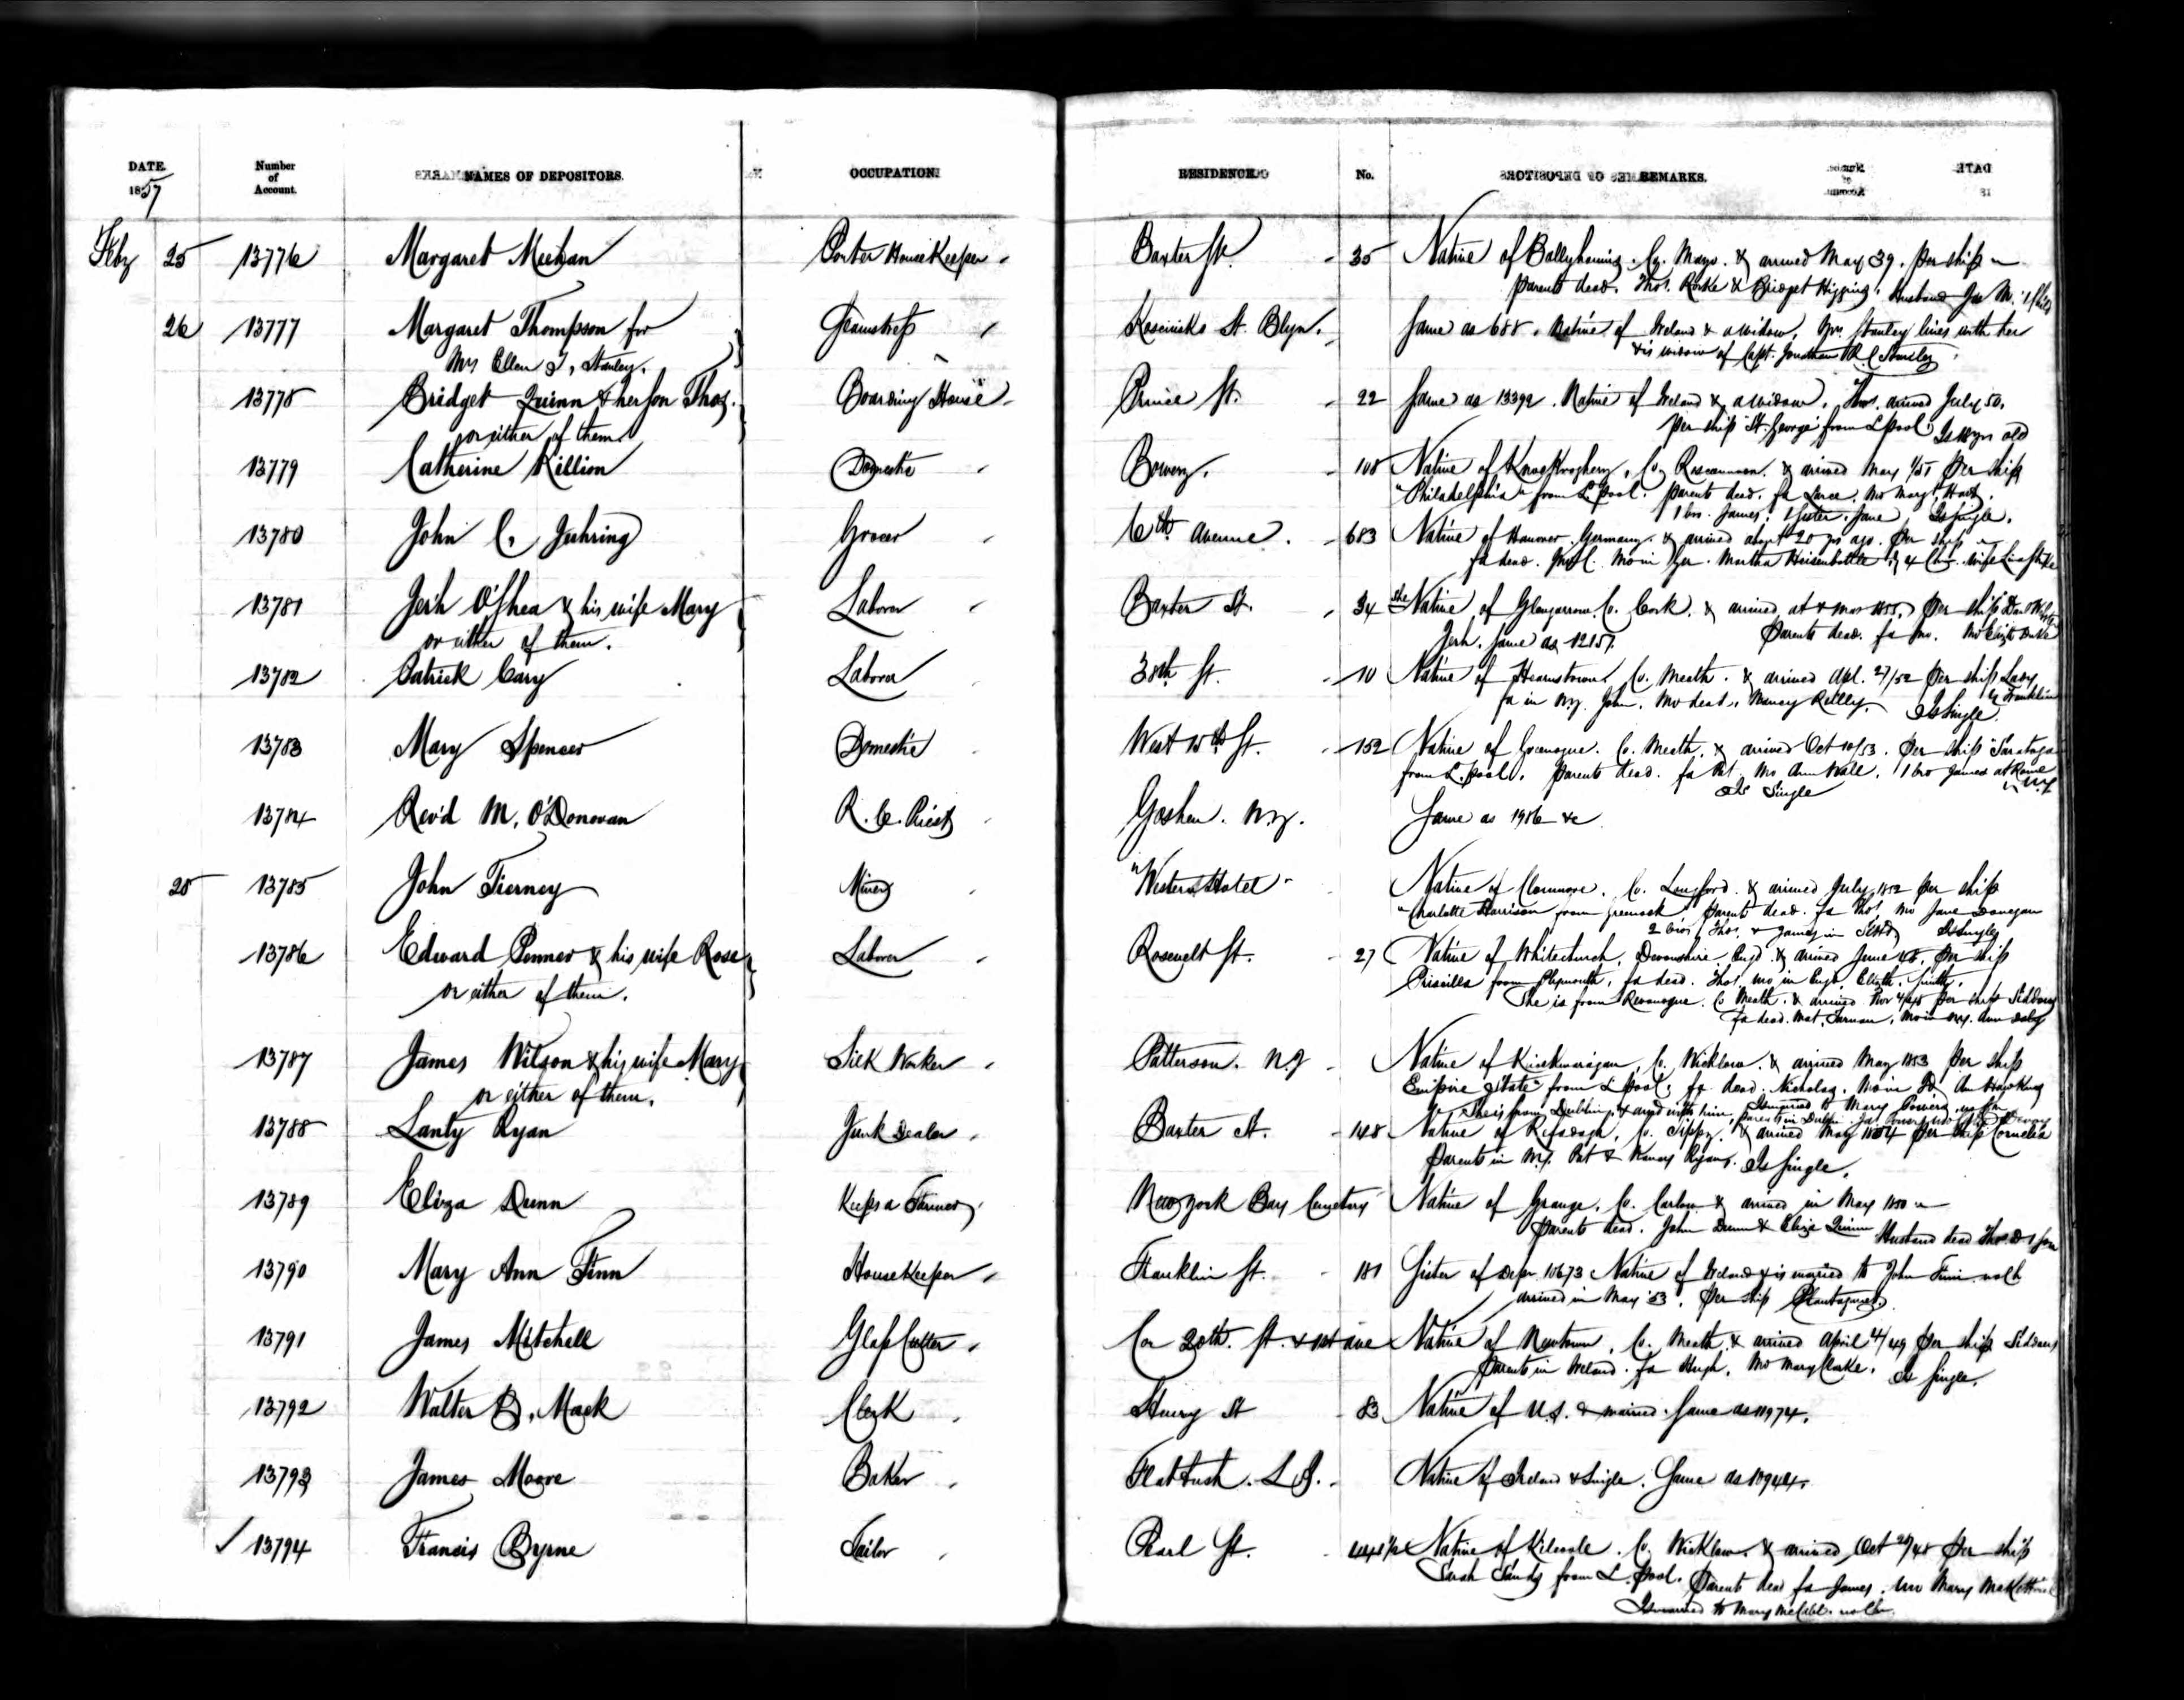 DATE. Number of Account. NAMES OF DEPOSITORS. OCCUPATION. RESIDENCE. No. REMARKS.
1857
Feby 25 13776 Margaret Meehan Porter House Keeper Baxter St. 35 Native of Ballyhaunis. Co. Mayo. & arrived May 39. per ship
parents dead. Thos. Rorke & Bridget Higgins. Husband Jas M. 1 child
26 13777 Margaret Thompson for Seamstress Kosciusko St. Blyn. Same as 688. Native of Ireland & a widow. Mrs. Stanley lives with her
Mrs Ellen T, Stanley. & is widow of Capt. Jonathan R C Stanley
13778 Bridget Quinn & her son Thos. Boarding House Prince St. 22 Same as 13392. Native of Ireland & a widow. Thos. arrived July 50.
or either of them. per ship St. George from L.pool. Is 18 yrs old
13779 Catherine Killion Domestic Bowery. 108 Native of Knockcroghery, Co. Roscommon. & arrived May 1/51 per ship
"Philadelphia" from L.pool. parents dead. fa Larce. mo Margt.
1 bro. James. 1 sister. Jane Is single.
13780 John C. Juhring Grocer 6th avenue. 683 Native of Hanover. Germany. & arrived about 20 yrs ago. per ship
fa dead. mo in Ger. Martha Heisenbottle. & 4 Chn. wife
13781 Jerh O'Shea & his wife Mary Laborer Baxter St. 34 She Native of Glengarrow. Co. Cork. & arrived per ship
or either of them. Jerh. Same as 12157. parents dead. fa
13782 Patrick Cary Laborer 38th St. 10 Native of Co. Meath. & arrived Apl. 27/52 per ship Lady
fa in N.Y. John. mo dead. Nancy Reilly. Is Single. Franklin
13783 Mary Spencer Domestic West 15th St. 152 Native of Greenogue. Co. Meath. & arrived Oct 10/53. per ship "Saratoga
from L.pool. parents dead. fa Pat. mo Ann Wall. 1 bro James at Rome
Is Single N.Y.
13784 Rev'd M. O'Donovan R. C. Priest Goshen. N.Y. Same as 1986 &c
28 13785 John Tierney Miner "Western Hotel" Native of Clonmore. Co. Longford. & arrived July 1852 per ship
"Charlotte Harrison from Greenock. parents dead. fa Thos. mo Jane Donegan
2 bros, Thos. & James in Is single
13786 Edward Penner & his wife Rose Laborer Rosevelt St. 27 Native of Whitechurch. Devonshire. Engd. & arrived June 48. per ship
or either of them. Priscilla from Plymouth. fa dead. Thos. mo in Engd. Elizth. Smith.
She is from Co Meath. & arrived Nov 4/48 per ship Siddons
fa dead. Mat. mo in N.Y. Ann Daly
13787 James Wilson & his wife Mary Silk Worker Patterson. N.J Native of Co. Wicklow. & arrived May 1853 per ship
or either of them. Empire State from L.pool. fa dead. Nicholas. mo in Id. An Hawkins
She is from Dublin. & arrd with him, Is married to Mary Powers. parents in Dublin
13788 Lanty Ryan Junk Dealer Baxter St. 148 Native of Co. Tippy. & arrived May 1854 per ship Cornelia
Parents in N.Y. Pat & Nancy Ryan. Is Single.
13789 Eliza Dunn Keeps a Farmer New York Bay Cemetery Native of Grange. Co. Carlow & arrived in May 1850
parents dead. John Dunn & Eliza Quinn Husband dead Thos. D 1 son
13790 Mary Ann Finn House Keeper Franklin St. 181 Sister of Depr. 10673 Native of Ireland & is married to John Finn. no Ch
arrived in May '53. per ship Plantagenet.
13791 James Mitchell Glass Cutter Cor 20th. St. & 1st ave Native of Newtown, Co. Meath. & arrived April 4/49 per ship Siddons
parents in Ireland. fa Hugh. mo Mary Clarke. Is Single.
13792 Walter B. Mack Clerk Henry St 83 Native of U.S. & married. Same as 11974.
13793 James Moore Baker Flatbush. L.I. Native of Ireland & Single. Same as 10944.
✓ 13794 Francis Byrne Tailor Pearl St. 448 1/2 Native of Kilcoole. Co. Wicklow. & arrived Oct 28/48 per ship
Sarah Sands from L.pool. parents dead fa James. mo Mary
Is married to Mary McCabe. no Ch.